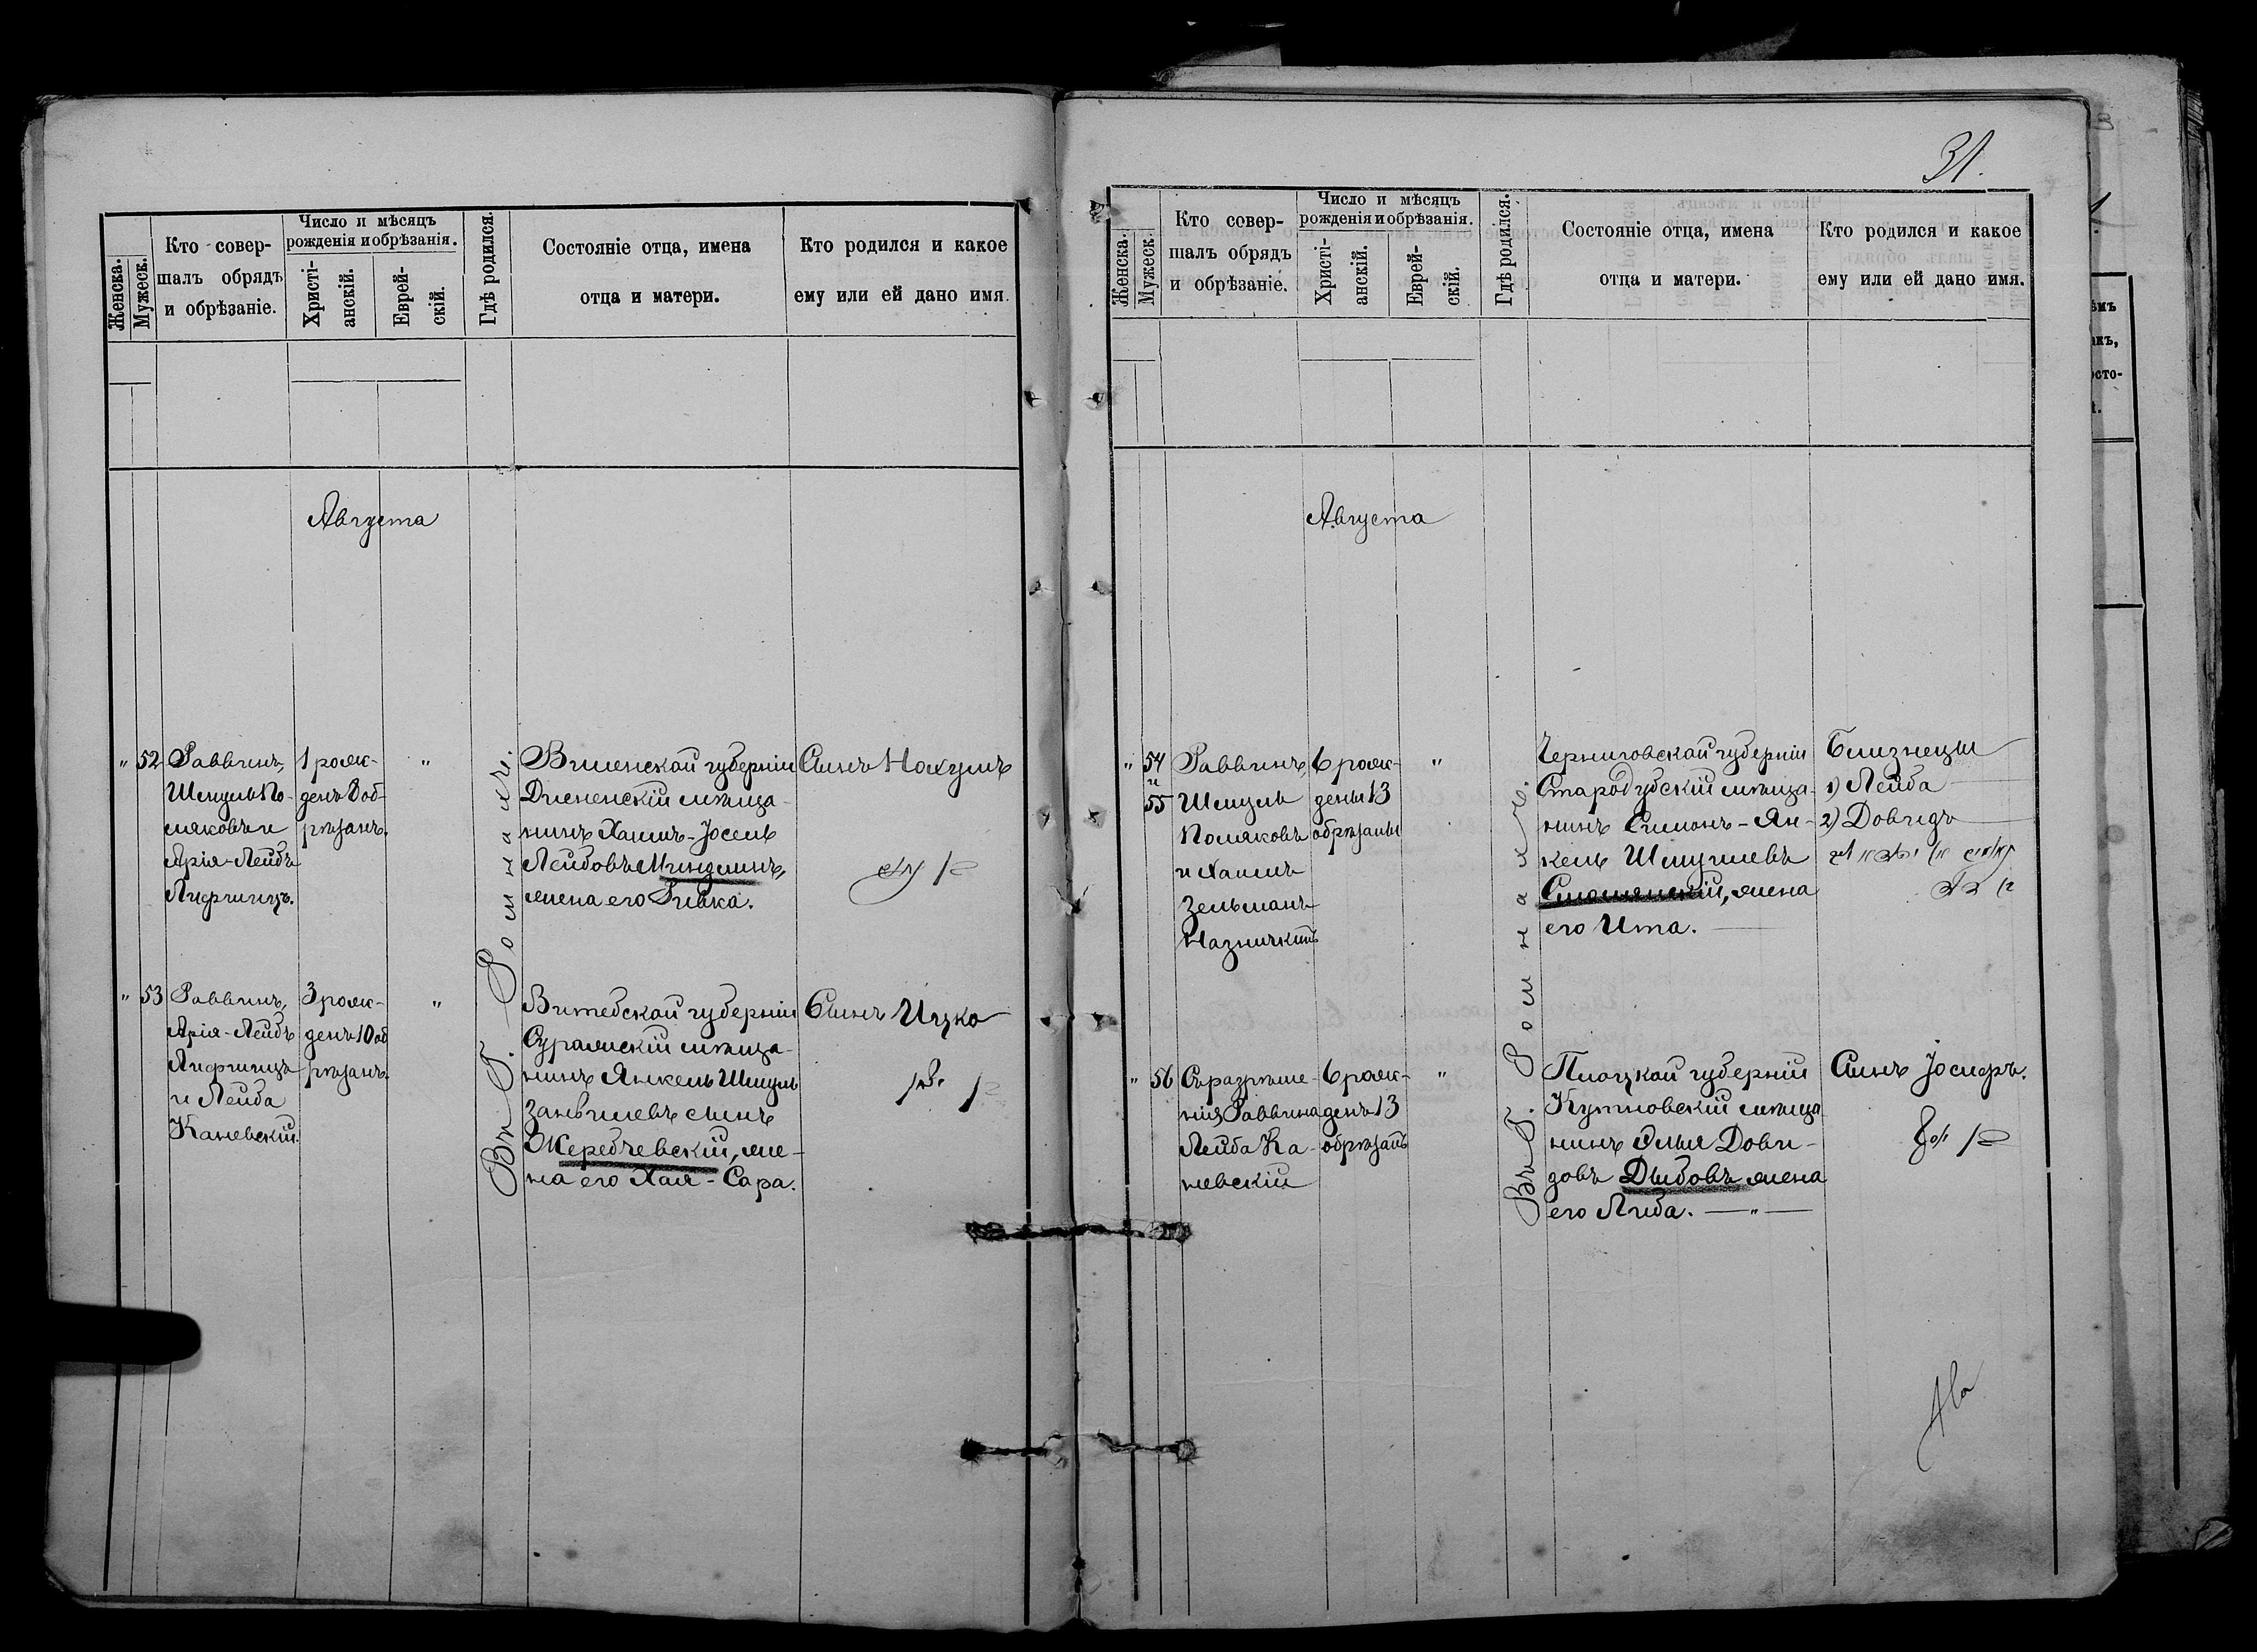 Женска.
Мужеск.
Кто совер-
шалъ обрядъ
и обрѣзаніе.
Число и мѣсяцъ
рожденія и обрѣзанія.
Христі-
анскій.
Еврей-
скій.
Гдѣ родился.
Состояніе отца, имена
отца и матери.
Кто родился и какое
ему или ей дано имя.
Августа
" 52
Раввинъ,
Шмуль По-
ляковъ и
Арія-Лейбъ
Лифшицъ.
1 рож-
денъ 8 об-
рѣзанъ.
"
Въ Г. Ромнахъ.
Виленской губерніи
Дисненскій мѣща-
нинъ Хаимъ-Іосель
Лейбовъ Миндлинъ,
жена его Ривка.
Сынъ Нахумъ
" 53
Раввинъ,
Арія-Лейбъ
Лифшицъ
и Лейба
Каневскій.
3 рож-
денъ 10 об
рѣзанъ.
"
Витебской губерніи
Суражскій мѣща-
нинъ Янкель Шмуль
Занвилевъ сынъ
Жеребчевскій, же-
на его Хая-Сара.
Сынъ Ицко
31.
Женска.
Мужеск.
Кто совер-
шалъ обрядъ
и обрѣзаніе.
Число и мѣсяцъ
рожденія и обрѣзанія.
Христі-
анскій.
Еврей-
скій.
Гдѣ родился.
Состояніе отца, имена
отца и матери.
Кто родился и какое
ему или ей дано имя.
Августа
" 54
и
55
Раввинъ
Шмуль
Поляковъ
и Хаимъ
Зельманъ
6 рож-
дены 13
обрѣзаны
"
Въ Г. Ромнахъ.
Черниговской губерніи
Стародубскій мѣща-
нинъ Симонъ-Ян-
кель Шмуилевъ
жена
его Ита.
Близнецы
1) Лейба
2) Довидъ
" 56
Съ разрѣше-
нія Раввина
Лейба Ка-
невскій
6 рож-
денъ 13
обрѣзанъ
"
Плоцкой губерніи
Кутновскій мѣща
нинъ Элья Дови-
довъ Дыбовъ жена
его Либа. — " —
Сынъ Іосифъ.